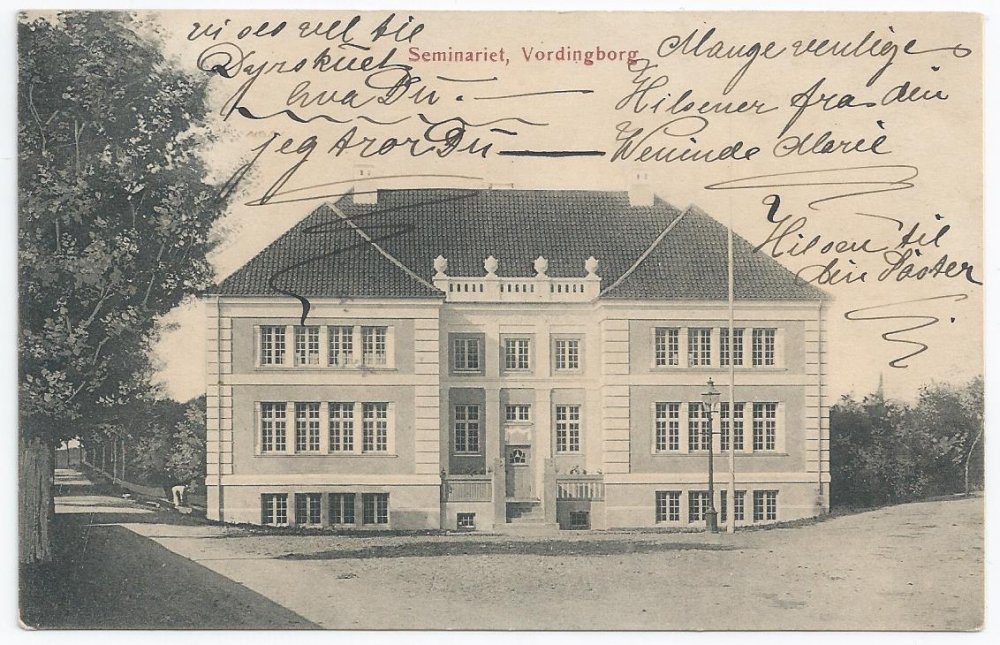 Seminariet, Vordingborg
vi ses vel til
Dyrskuet
hva Du.
jeg tror Du
Mange venlige
Hilsener fra din
Veninde Marie
Hilsen til
din Søster